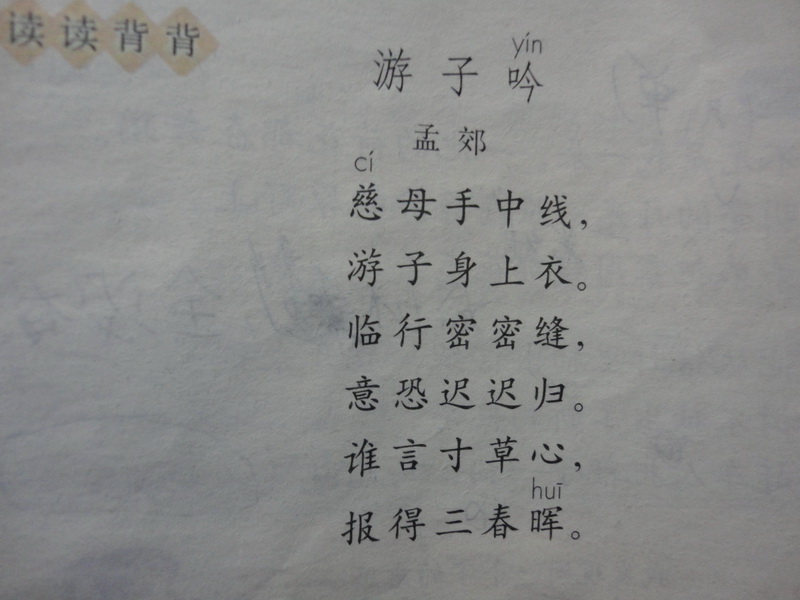 读读背背
yín
游子吟
孟郊
cí
慈母手中线，
游子身上衣。
临行密密缝，
意恐迟迟归。
谁言寸草心，
huī
报得三春晖。